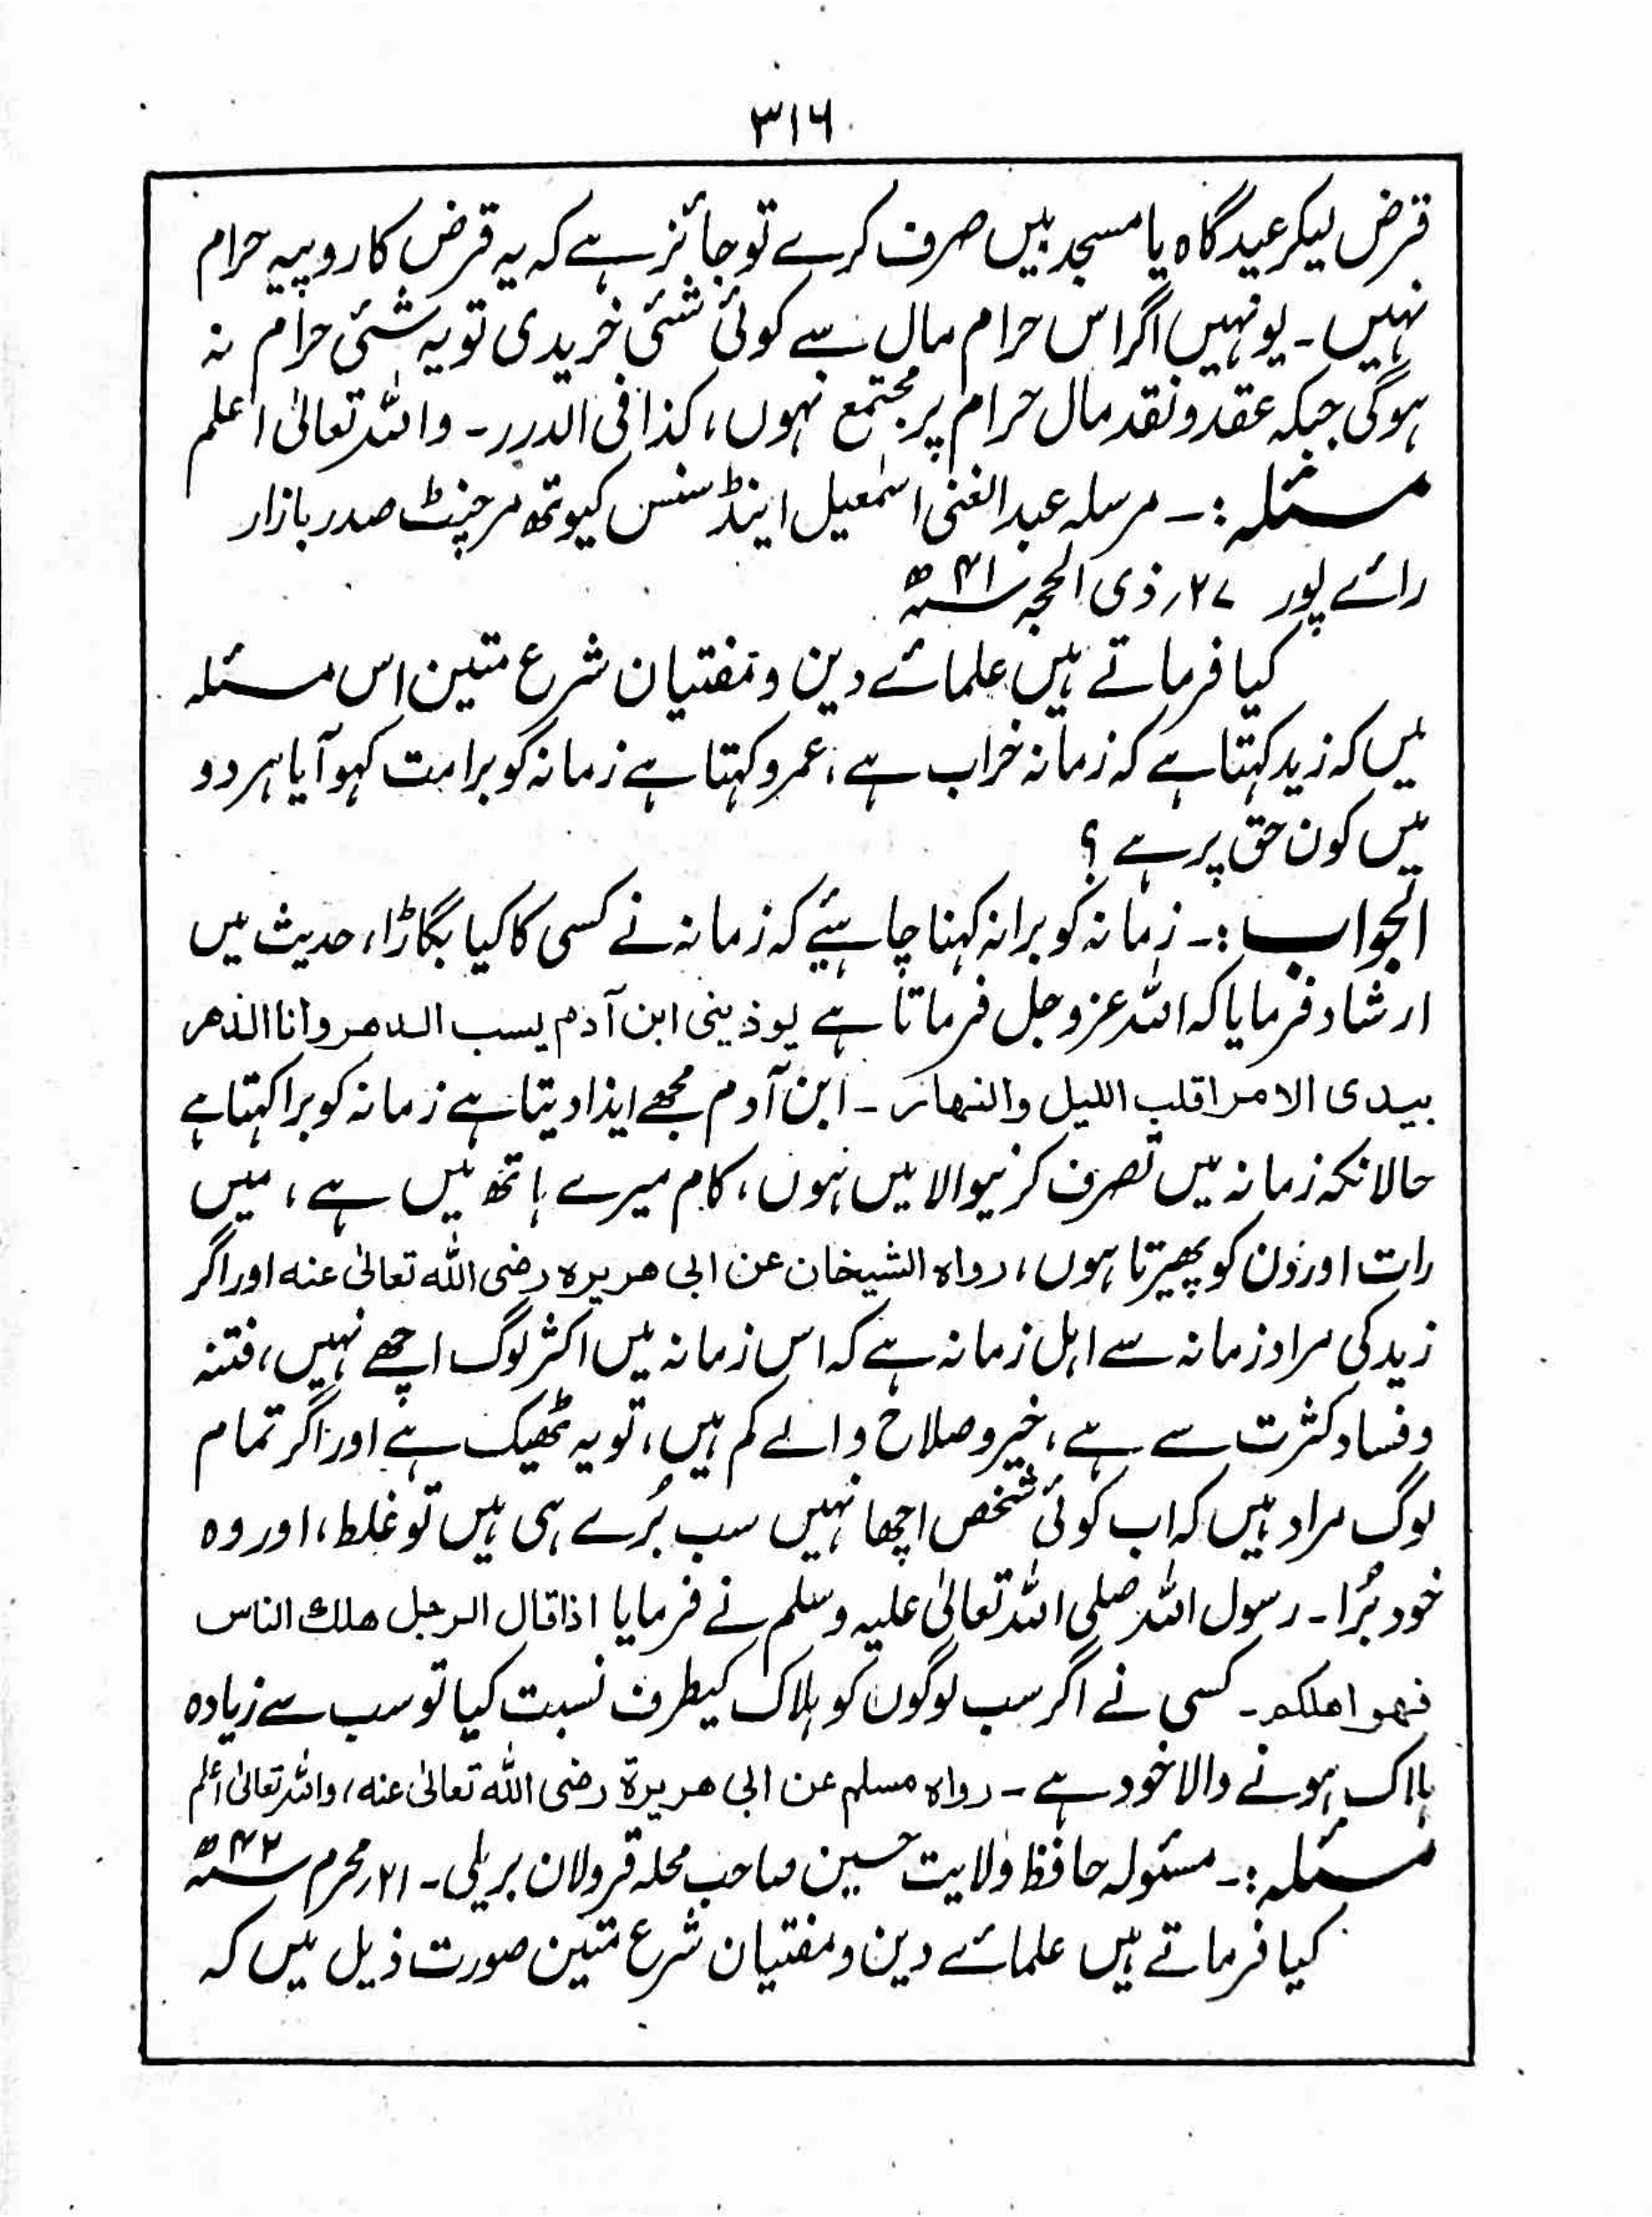 ۳۱۶
قرض لیکر عیدگاہ یا مسجد میں صرف کرے تو جائز ہے کہ یہ قرض کا روپیہ حرام
نہیں ۔ یونہیں اگر اس حرام مال سے کوئی شئی خریدی تو یہ شئی حرام نہ
ہوگی جبکہ عقد و نقد مال حرام پر مجتمع نہوں، کذا فی الدرر ۔ واللہ تعالیٰ اعلم
مسئلہ :۔ مرسلہ عبد الغنی اسمٰعیل اینڈ سنس کیوتھ مرچنٹ صدر بازار
رائے پور ۲۷؍ ذی الحجہ سنہ ۴۱ ھ
کیا فرماتے ہیں علمائے دین و مفتیان شرع متین اس مسئلہ
میں کہ زید کہتا ہے کہ زمانہ خراب ہے، عمرو کہتا ہے زمانہ کو برا مت کہو آیا ہر دو
میں کون حق پر ہے ؟
الجواب :۔ زمانہ کو برا نہ کہنا چاہیئے کہ زمانہ نے کسی کا کیا بگاڑا، حدیث میں
ارشاد فرمایا کہ اللہ عزوجل فرماتا ہے یوذینی ابن آدم یسب الدھر وانا الدھر
بیدی الامر اقلب اللیل والنھار ۔ ابن آدم مجھے ایذا دیتا ہے زمانہ کو برا کہتا ہے
حالانکہ زمانہ میں تصرف کرنیوالا میں ہوں، کام میرے ہاتھ میں ہے، میں
رات اور دن کو پھیرتا ہوں، رواہ الشیخان عن ابی ھریرہ رضی اللہ تعالیٰ عنہ اور اگر
زید کی مراد زمانہ سے اہل زمانہ ہے کہ اس زمانہ میں اکثر لوگ اچھے نہیں، فتنہ
و فساد کثرت سے ہے، خیر و صلاح والے کم ہیں، تو یہ ٹھیک ہے اور اگر تمام
لوگ مراد ہیں کہ اب کوئی شخص اچھا نہیں سب بُرے ہی ہیں تو غلط، اور وہ
خود بُرا ۔ رسول اللہ صلی اللہ تعالیٰ علیہ وسلم نے فرمایا اذا قال الرجل ھلک الناس
فھو اھلکھم ۔ کسی نے اگر سب لوگوں کو ہلاک کیطرف نسبت کیا تو سب سے زیادہ
ہلاک ہونے والا خود ہے ۔ رواہ مسلم عن ابی ھریرة رضی اللہ تعالیٰ عنہ، واللہ تعالیٰ اعلم
مسئلہ :۔ مسئولہ حافظ ولایت حسین صاحب محلہ قرولان بریلی ۔ ۲۱؍ محرم سنہ ۴۲ ھ
کیا فرماتے ہیں علمائے دین و مفتیان شرع متین صورت ذیل میں کہ